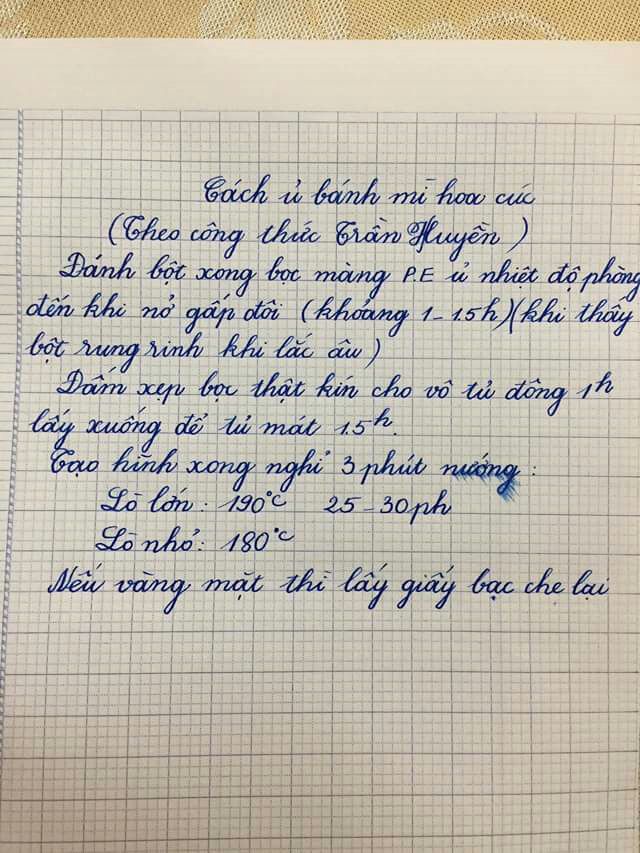 Cách ủ bánh mì hoa cúc
(Theo công thức Trần Huyền)
Đánh bột xong bọc màng P.E ủ nhiệt độ phòng
đến khi nở gấp đôi (khoảng 1-1.5h)(khi thấy
bột rung rinh khi lắc âu)
Đấm xẹp bọc thật kín cho vô tủ đông 1h
lấy xuống để tủ mát 1.5h.
Tạo hình xong nghỉ 3 phút nướng:
Lò lớn: 190°C 25-30ph
Lò nhỏ: 180°C
Nếu vàng mặt thì lấy giấy bạc che lại